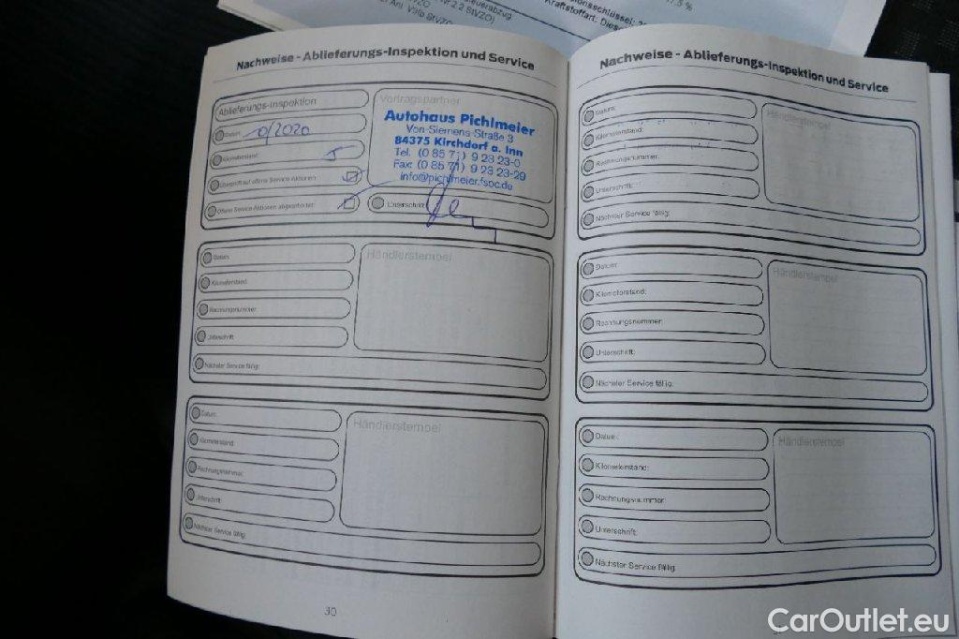 Kraftstoffart: Dies
Nachweise - Ablieferungs-Inspektion und Service
Ablieferungs-Inspektion
Datum:
0/2020
Kilometerstand:
5
Unterschrift:
Vertragspartner
Autohaus Pichlmeier
Von-Siemens-Straße 3
84375 Kirchdorf a. Inn
Tel. (0 85 71) 9 23 23-0
Fax: (0 85 71) 9 23 23-29
info@pichlmeier.fsoc.de
Datum:
Kilometerstand:
Rechnungsnummer:
Unterschrift:
Nächster Service fällig:
Händlerstempel
Datum:
Kilometerstand:
Rechnungsnummer:
Unterschrift:
Nächster Service fällig:
Händlerstempel
30
Nachweise - Ablieferungs-Inspektion und Service
Datum:
Kilometerstand:
Rechnungsnummer:
Unterschrift:
Nächster Service fällig:
Händlerstempel
Datum:
Kilometerstand:
Rechnungsnummer:
Unterschrift:
Nächster Service fällig:
Händlerstempel
Datum:
Kilometerstand:
Rechnungsnummer:
Unterschrift:
Nächster Service fällig:
Händlerstempel
CarOutlet.eu